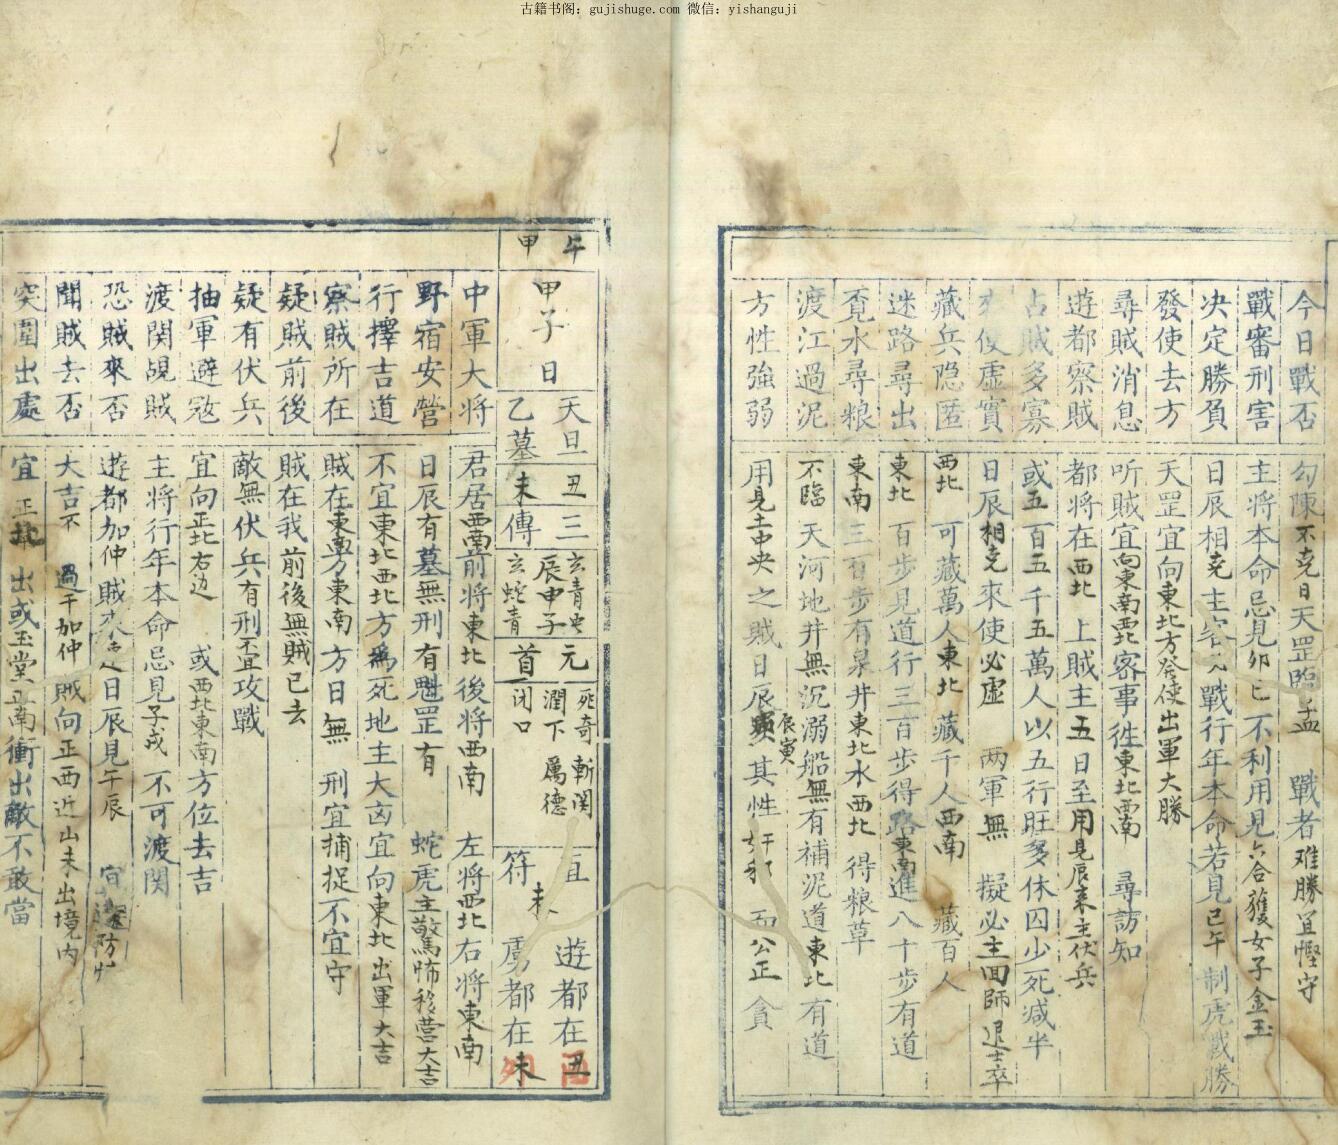 古籍书阁：gujishuge.com 微信：yishanguji
今日戰否 勾陳不克日天罡臨孟 戰者难勝宜慳守
戰審刑害 主將本命忌見卯 不利用見六合獲女子金玉
决定勝負 日辰相克主客 戰行年本命若見巳午 制虎戰勝
發使去方 天罡宜向東北方發使出軍大勝
尋賊消息 听賊宜向東南西北客事徃東北西南 尋訪知
遊都察賊 都將在西北 上賊主五日至用見辰来主伏兵
占賊多寡 或五百五千五萬人以五行旺多休囚少死减半
來使虚實 日辰相克來使必虚 两軍無 擬必主回師退士卒
藏兵隐匿 西北 可藏萬人東北 藏千人西南 藏百人
迷路尋出 東北 百步見道行三百步得路東南進八十步有道
覔水尋粮 東南 三百步有泉井東北水西北 得粮草
渡江過泥 不臨 天河地井無沉溺船無有補泥道東北有道
方性強弱 用見土中央之賊日辰 辰寅 其性奸邪 而公正 貪
甲午
甲子日
天旦丑三
乙墓未傳
玄青虫
辰申子
玄蛇青
元首
死奇 斬関
潤下 厲德
闭口
直符未
遊都在丑
虜都在未
中軍大将 君居西南前将東北後将西南 左将西北右将東南
野宿安營 日辰有墓無刑有魁罡有 蛇虎主驚怖移营大吉
行擇吉道 不宜東北西北方爲死地主大凶宜向東北出軍大吉
察賊所在 賊在東南方東南方日無 刑宜捕捉不宜守
疑賊前後 賊在我前後無賊已去
疑有伏兵 敵無伏兵有刑不宜攻戰
抽軍避寇 宜向正北右边 或西北東南方位去吉
渡関覘賊 主將行年本命忌見子戌 不可渡関
恐賊來否 遊都加仲賊來 日辰見午辰 宜 防
聞賊去否 大吉不 過干加仲 賊向正西近山未出境内
突圍出處 宜正北 出或玉堂正南衝出敵不敢當